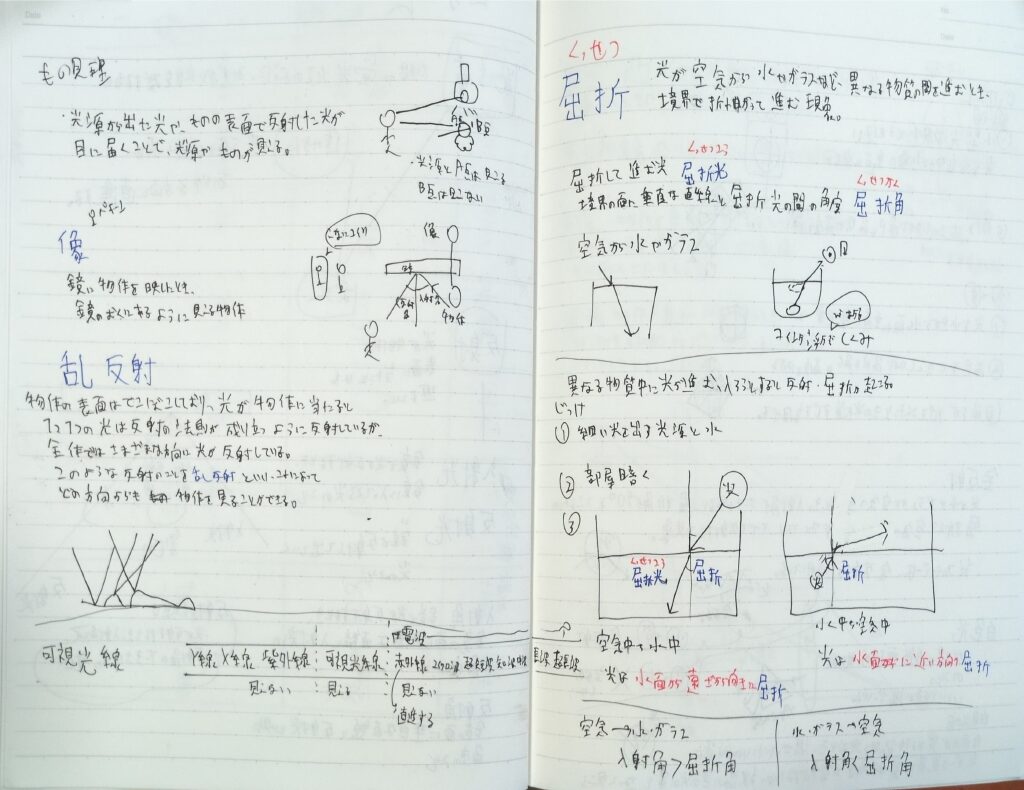 もの見え理
・光源から出た光や、ものの表面で反射した光が
目に届くことで、光源やものが見える。
A点
B点
・光源とA点は見える
B点は見えない
像
鏡に物体を映したとき、
鏡のおくにあるように見える物体
像
物体
乱反射
物体の表面はでこぼこしており、光が物体に当たると
1つ1つの光は反射の法則が成り立つように反射しているが、
全体ではさまざまな方向に光が反射している。
このような反射のことを乱反射といい、これによって
どの方向からも物体を見ることができる。
可視光線
電波
γ線 X線 紫外線 可視光線 赤外線
見えない 見える 見えない
直進する
くっせつ
屈折
光が空気から水やガラスなど、異なる物質の間を進むとき、
境界で折れ曲がって進む現象。
くっせつこう
屈折して進む光 屈折光
くっせつかく
境界の面に垂直な直線と屈折光の間の角度 屈折角
空気から水やガラス
目
異なる物質中に光が進む、入ろうとすると反射・屈折が起こる。
じっけ
① 細い光を出す光源と水
② 部屋暗く
③
光
くっせつこう
屈折光 屈折
光 屈折
空気中→水中
光は水面から遠ざかる向きに屈折
水中から空気中
光は水面がわに近い方向へ屈折
空気→水・ガラス
入射角>屈折角
水・ガラス→空気
入射角<屈折角